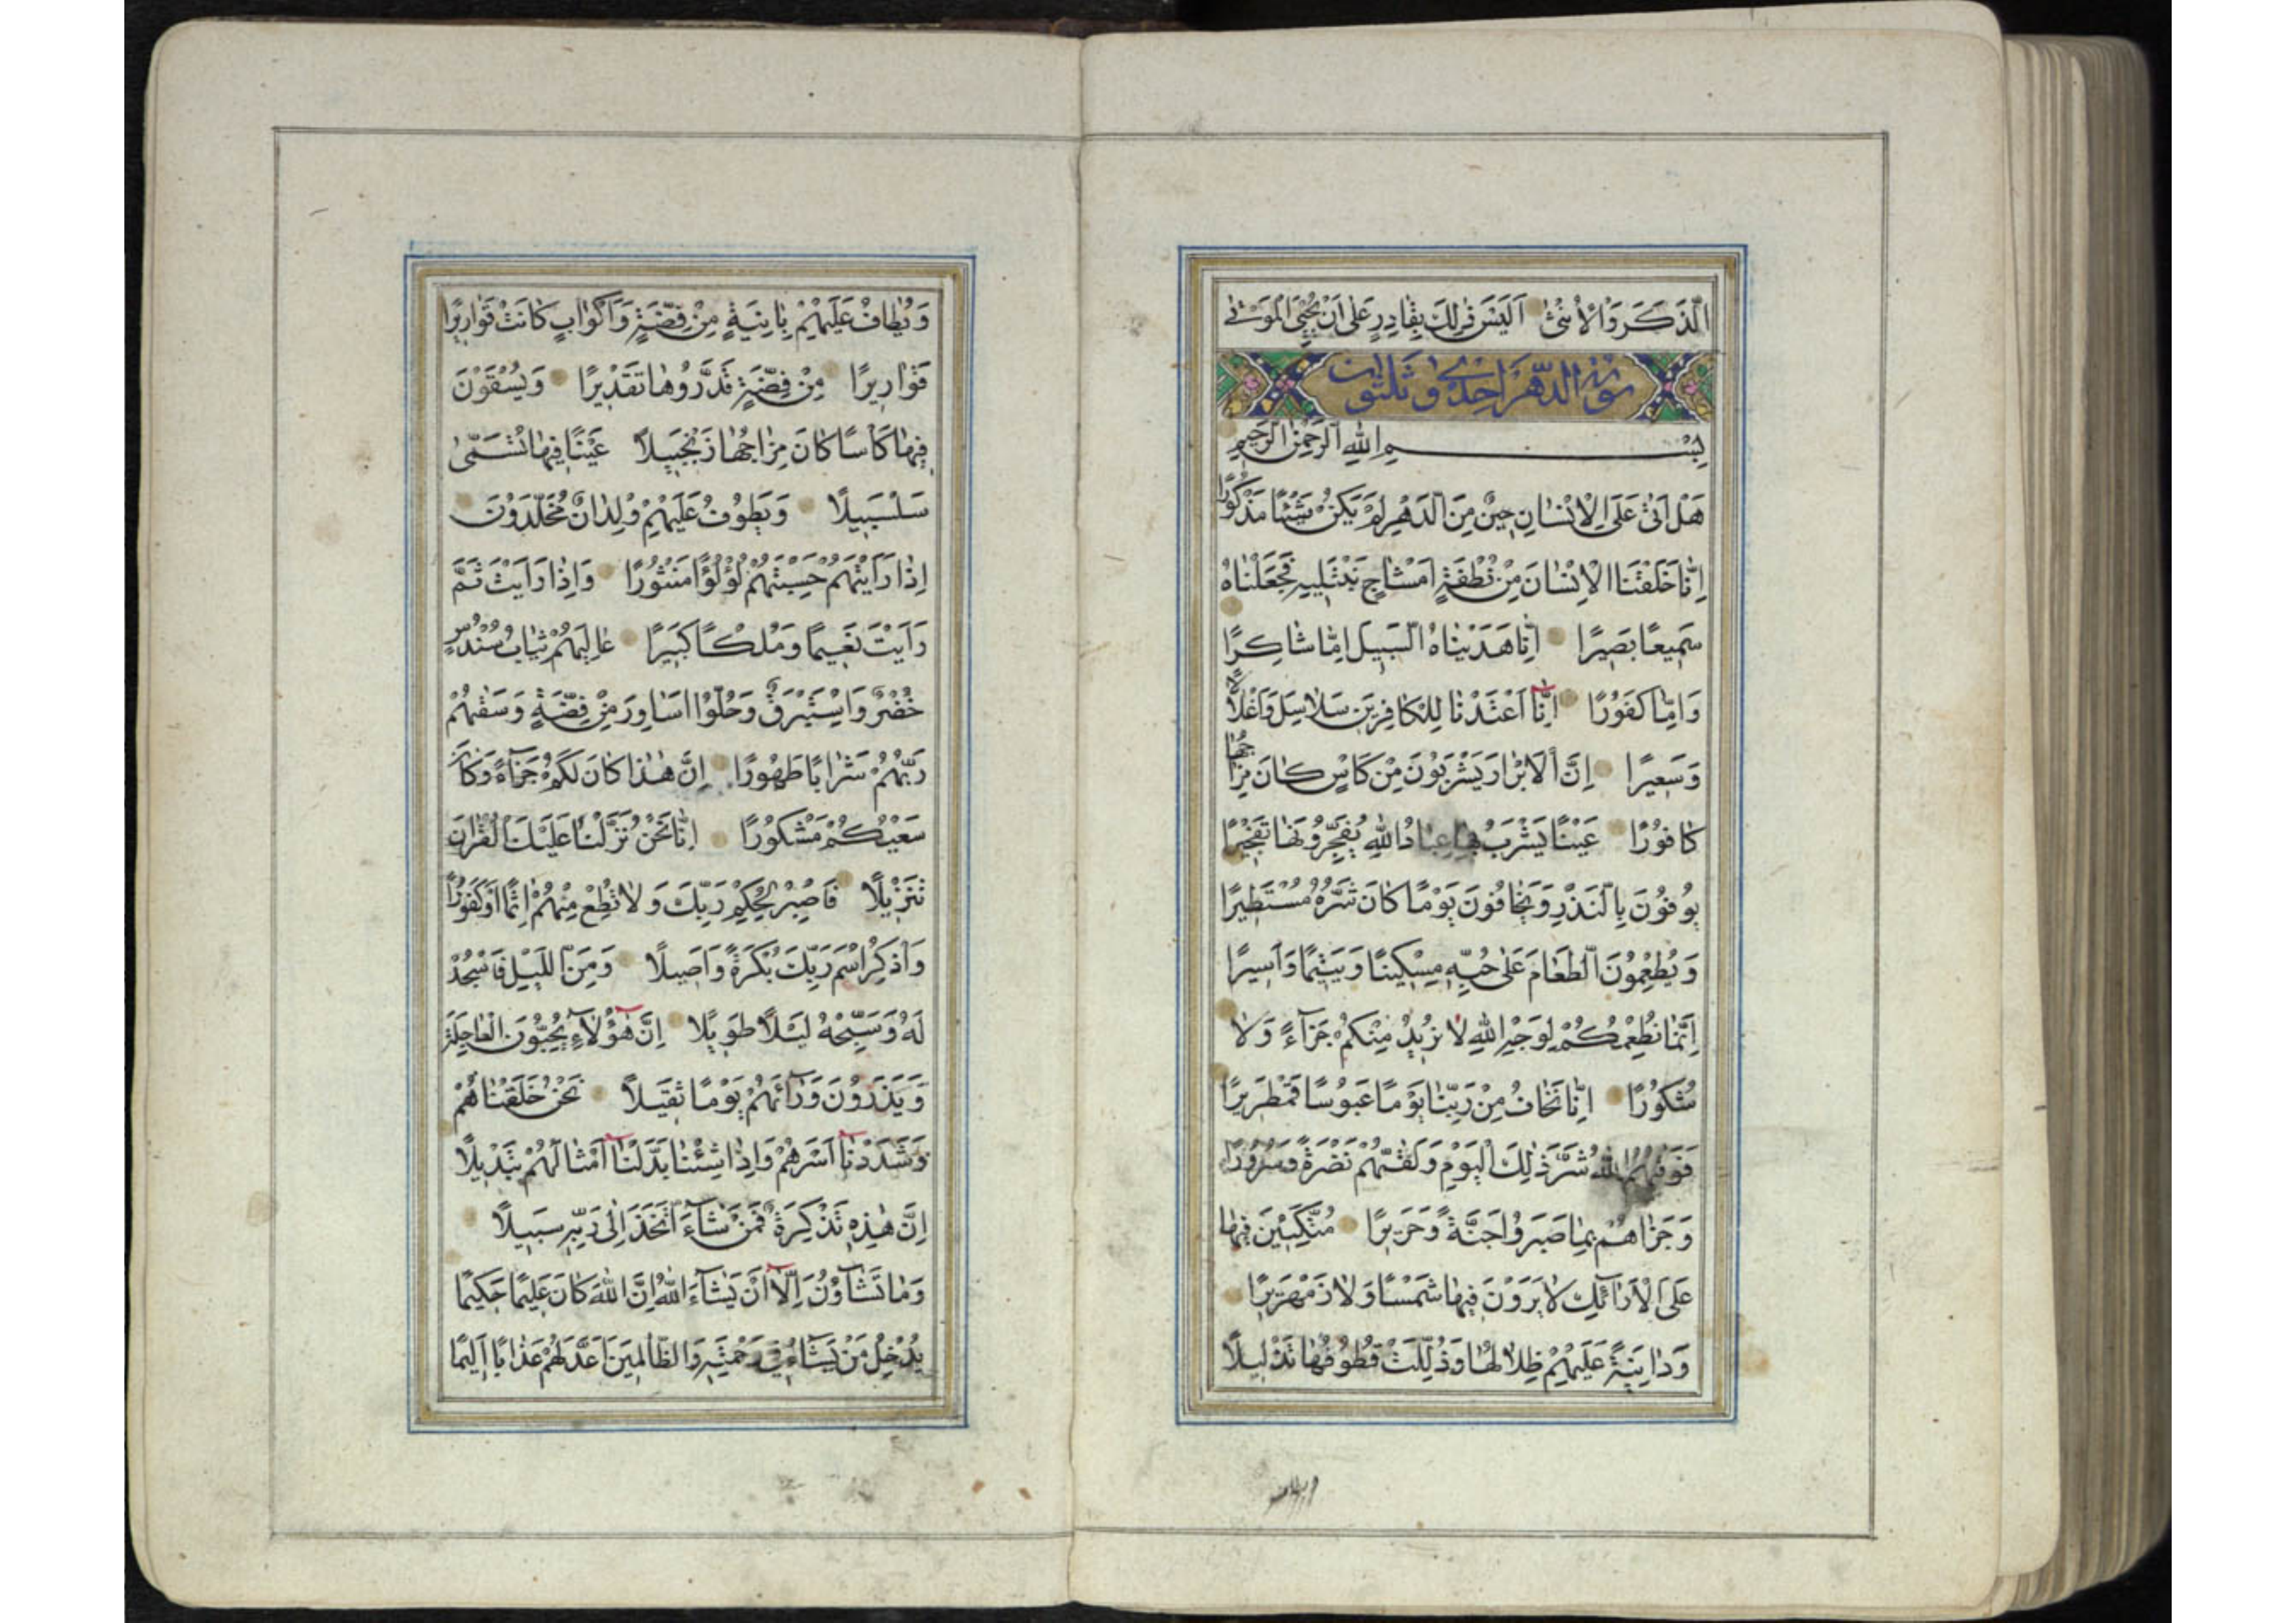 الذَّكَرَ وَالْاُنْثٰى اَلَيْسَ ذٰلِكَ بِقَادِرٍ عَلٰى اَنْ يُحْيِىَ الْمَوْتٰى
سورة الدهر احدى وثلثون
بِسْمِ اللّٰهِ الرَّحْمٰنِ الرَّحِيمِ
هَلْ اَتٰى عَلَى الْاِنْسَانِ حِينٌ مِنَ الدَّهْرِ لَمْ يَكُنْ شَيْئًا مَذْكُورًا
اِنَّا خَلَقْنَا الْاِنْسَانَ مِنْ نُطْفَةٍ اَمْشَاجٍ نَبْتَلِيهِ فَجَعَلْنَاهُ
سَمِيعًا بَصِيرًا اِنَّا هَدَيْنَاهُ السَّبِيلَ اِمَّا شَاكِرًا
وَاِمَّا كَفُورًا اِنَّا اَعْتَدْنَا لِلْكَافِرِينَ سَلَاسِلَ وَاَغْلَالًا
وَسَعِيرًا اِنَّ الْاَبْرَارَ يَشْرَبُونَ مِنْ كَاْسٍ كَانَ مِزَاجُهَا
كَافُورًا عَيْنًا يَشْرَبُ بِهَا عِبَادُ اللّٰهِ يُفَجِّرُونَهَا تَفْجِيرًا
يُوفُونَ بِالنَّذْرِ وَيَخَافُونَ يَوْمًا كَانَ شَرُّهُ مُسْتَطِيرًا
وَيُطْعِمُونَ الطَّعَامَ عَلٰى حُبِّهِ مِسْكِينًا وَيَتِيمًا وَاَسِيرًا
اِنَّمَا نُطْعِمُكُمْ لِوَجْهِ اللّٰهِ لَا نُرِيدُ مِنْكُمْ جَزَآءً وَلَا
شُكُورًا اِنَّا نَخَافُ مِنْ رَبِّنَا يَوْمًا عَبُوسًا قَمْطَرِيرًا
فَوَقٰيهُمُ اللّٰهُ شَرَّ ذٰلِكَ الْيَوْمِ وَلَقّٰيهُمْ نَضْرَةً وَسُرُورًا
وَجَزَاهُمْ بِمَا صَبَرُوا جَنَّةً وَحَرِيرًا مُتَّكِئِينَ فِيهَا
عَلَى الْاَرَآئِكِ لَا يَرَوْنَ فِيهَا شَمْسًا وَلَا زَمْهَرِيرًا
وَدَانِيَةً عَلَيْهِمْ ظِلَالُهَا وَذُلِّلَتْ قُطُوفُهَا تَذْلِيلًا
ويطاف
وَيُطَافُ عَلَيْهِمْ بِاٰنِيَةٍ مِنْ فِضَّةٍ وَاَكْوَابٍ كَانَتْ قَوَارِيرَا
قَوَارِيرًا مِنْ فِضَّةٍ قَدَّرُوهَا تَقْدِيرًا وَيُسْقَوْنَ
فِيهَا كَاْسًا كَانَ مِزَاجُهَا زَنْجَبِيلًا عَيْنًا فِيهَا تُسَمّٰى
سَلْسَبِيلًا وَيَطُوفُ عَلَيْهِمْ وِلْدَانٌ مُخَلَّدُونَ
اِذَا رَاَيْتَهُمْ حَسِبْتَهُمْ لُؤْلُؤًا مَنْثُورًا وَاِذَا رَاَيْتَ ثَمَّ
رَاَيْتَ نَعِيمًا وَمُلْكًا كَبِيرًا عَالِيَهُمْ ثِيَابُ سُنْدُسٍ
خُضْرٌ وَاِسْتَبْرَقٌ وَحُلُّوا اَسَاوِرَ مِنْ فِضَّةٍ وَسَقٰيهُمْ
رَبُّهُمْ شَرَابًا طَهُورًا اِنَّ هٰذَا كَانَ لَكُمْ جَزَآءً وَكَانَ
سَعْيُكُمْ مَشْكُورًا اِنَّا نَحْنُ نَزَّلْنَا عَلَيْكَ الْقُرْاٰنَ
تَنْزِيلًا فَاصْبِرْ لِحُكْمِ رَبِّكَ وَلَا تُطِعْ مِنْهُمْ اٰثِمًا اَوْ كَفُورًا
وَاذْكُرِ اسْمَ رَبِّكَ بُكْرَةً وَاَصِيلًا وَمِنَ اللَّيْلِ فَاسْجُدْ
لَهُ وَسَبِّحْهُ لَيْلًا طَوِيلًا اِنَّ هٰؤُلَآءِ يُحِبُّونَ الْعَاجِلَةَ
وَيَذَرُونَ وَرَآئَهُمْ يَوْمًا ثَقِيلًا نَحْنُ خَلَقْنَاهُمْ
وَشَدَدْنَا اَسْرَهُمْ وَاِذَا شِئْنَا بَدَّلْنَا اَمْثَالَهُمْ تَبْدِيلًا
اِنَّ هٰذِهِ تَذْكِرَةٌ فَمَنْ شَآءَ اتَّخَذَ اِلٰى رَبِّهِ سَبِيلًا
وَمَا تَشَآؤُنَ اِلَّا اَنْ يَشَآءَ اللّٰهُ اِنَّ اللّٰهَ كَانَ عَلِيمًا حَكِيمًا
يُدْخِلُ مَنْ يَشَآءُ فِى رَحْمَتِهِ وَالظَّالِمِينَ اَعَدَّ لَهُمْ عَذَابًا اَلِيمًا